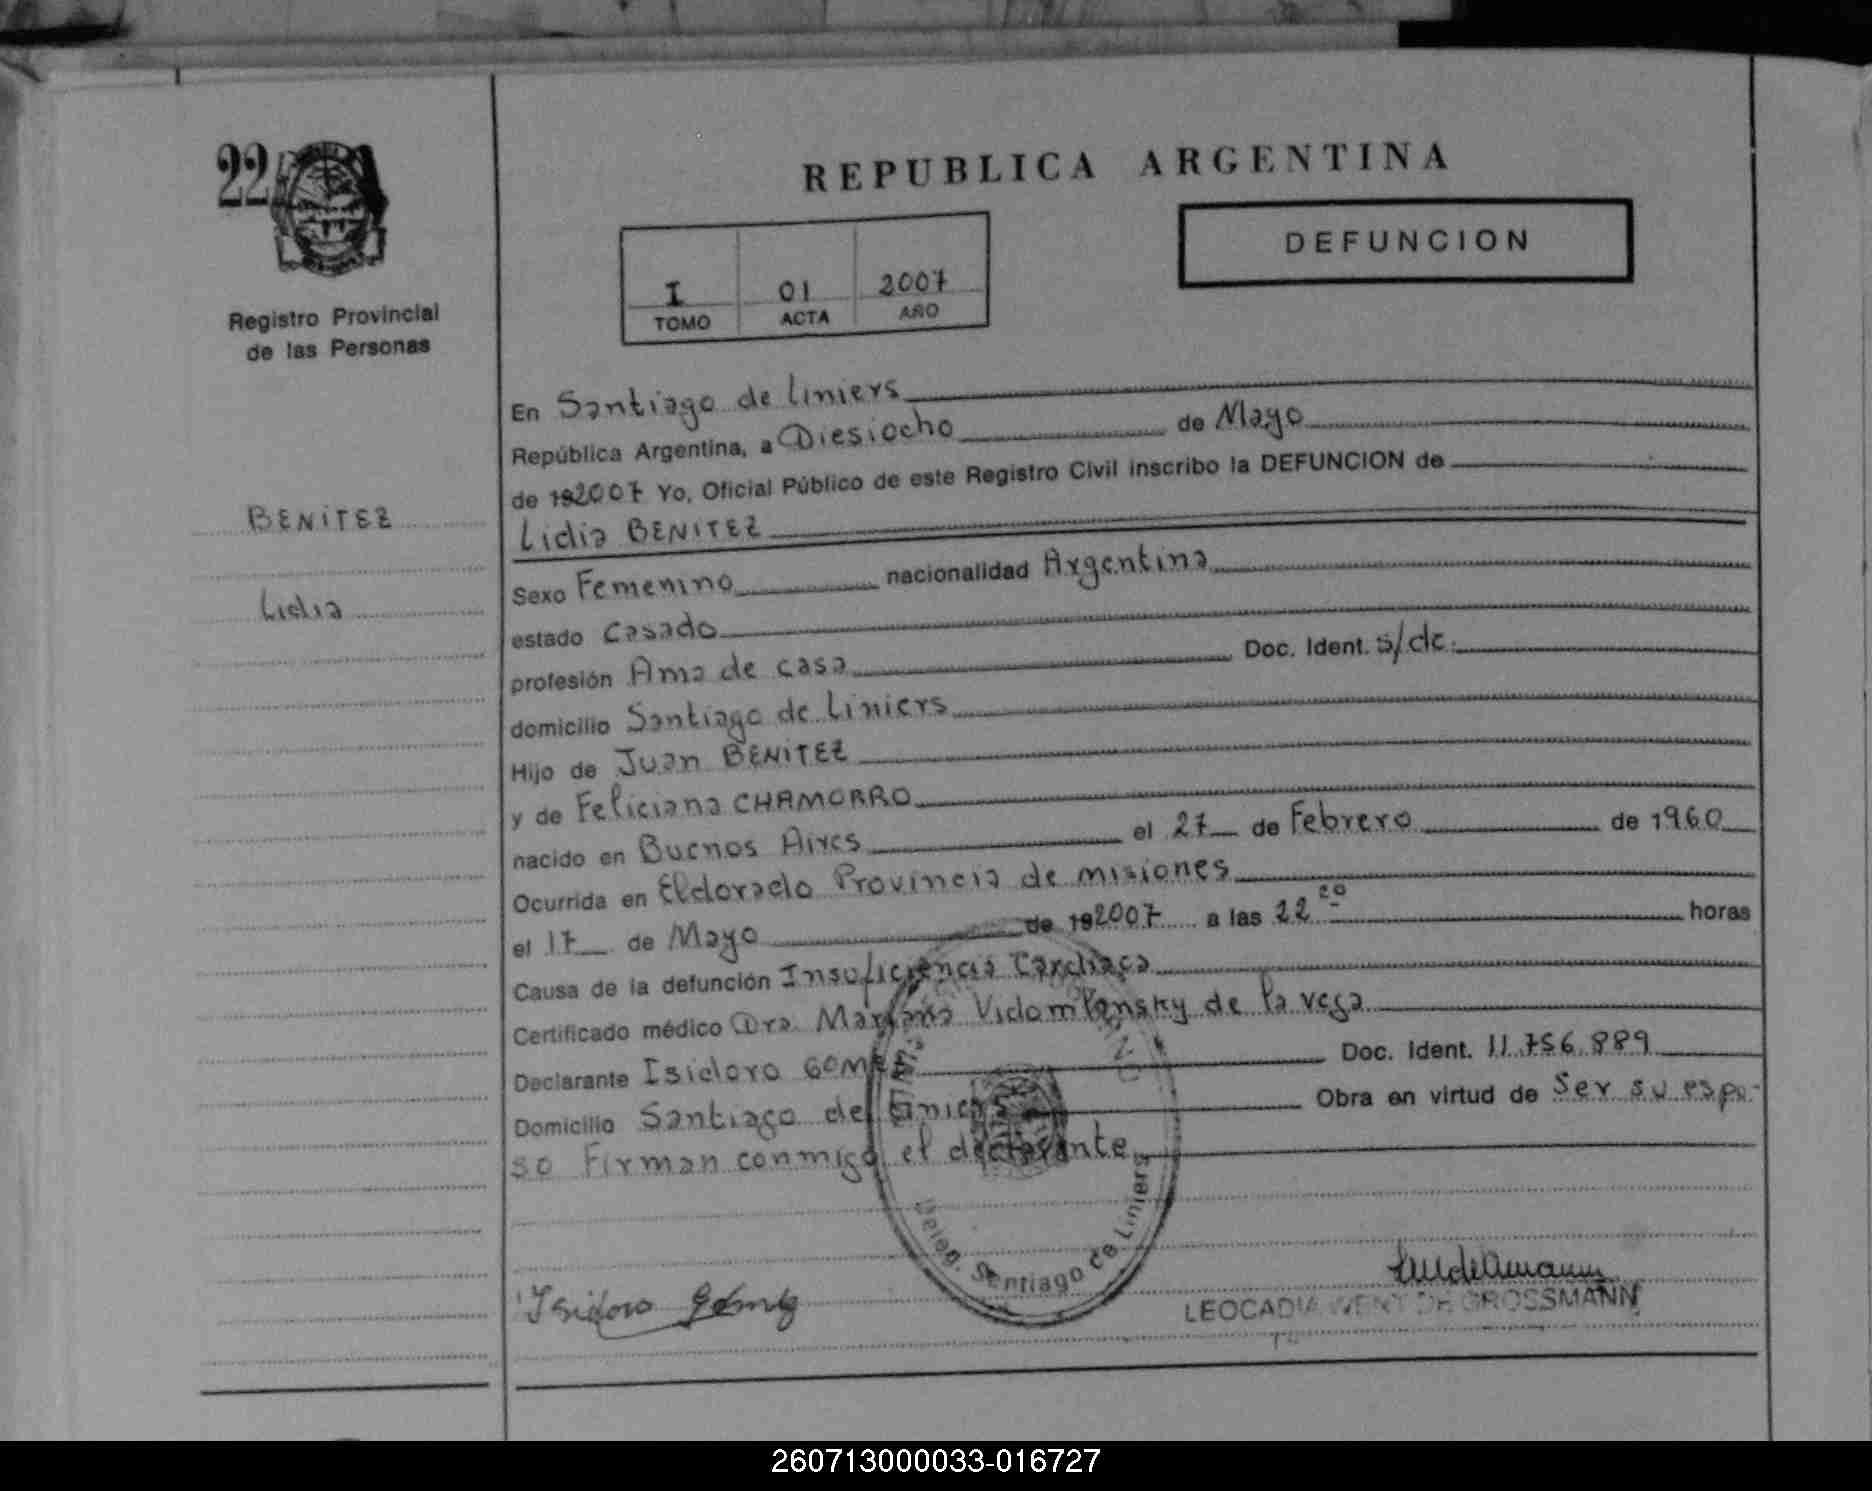 22
REPUBLICA ARGENTINA
Registro Provincial
de las Personas
I 01 2007
TOMO ACTA AÑO
DEFUNCION
BENITEZ
Lidia
En Santiago de Liniers
República Argentina, a Diesiocho de Mayo
de 192007 Yo, Oficial Público de este Registro Civil inscribo la DEFUNCION de
Lidia BENITEZ
Sexo Femenino nacionalidad Argentina
estado Casado
profesión Ama de casa Doc. Ident. s/dc.
domicilio Santiago de Liniers
Hijo de Juan BENITEZ
y de Feliciana CHAMORRO
nacido en Buenos Aires el 27 de Febrero de 1960
Ocurrida en Eldorado Provincia de misiones
el 17 de Mayo de 192007 a las 22 horas
Causa de la defunción Insuficiencia Cardiaca
Certificado médico Dra. Mariana de la vega
Declarante Isidoro Doc. Ident. 11.756.889
Domicilio Santiago de Liniers Obra en virtud de Ser su espo-
so Firman conmigo el declarante
Deleg. Santiago de Liniers
Isidoro Gómez
LEOCADIA WENT DE GROSSMANN
260713000033-016727